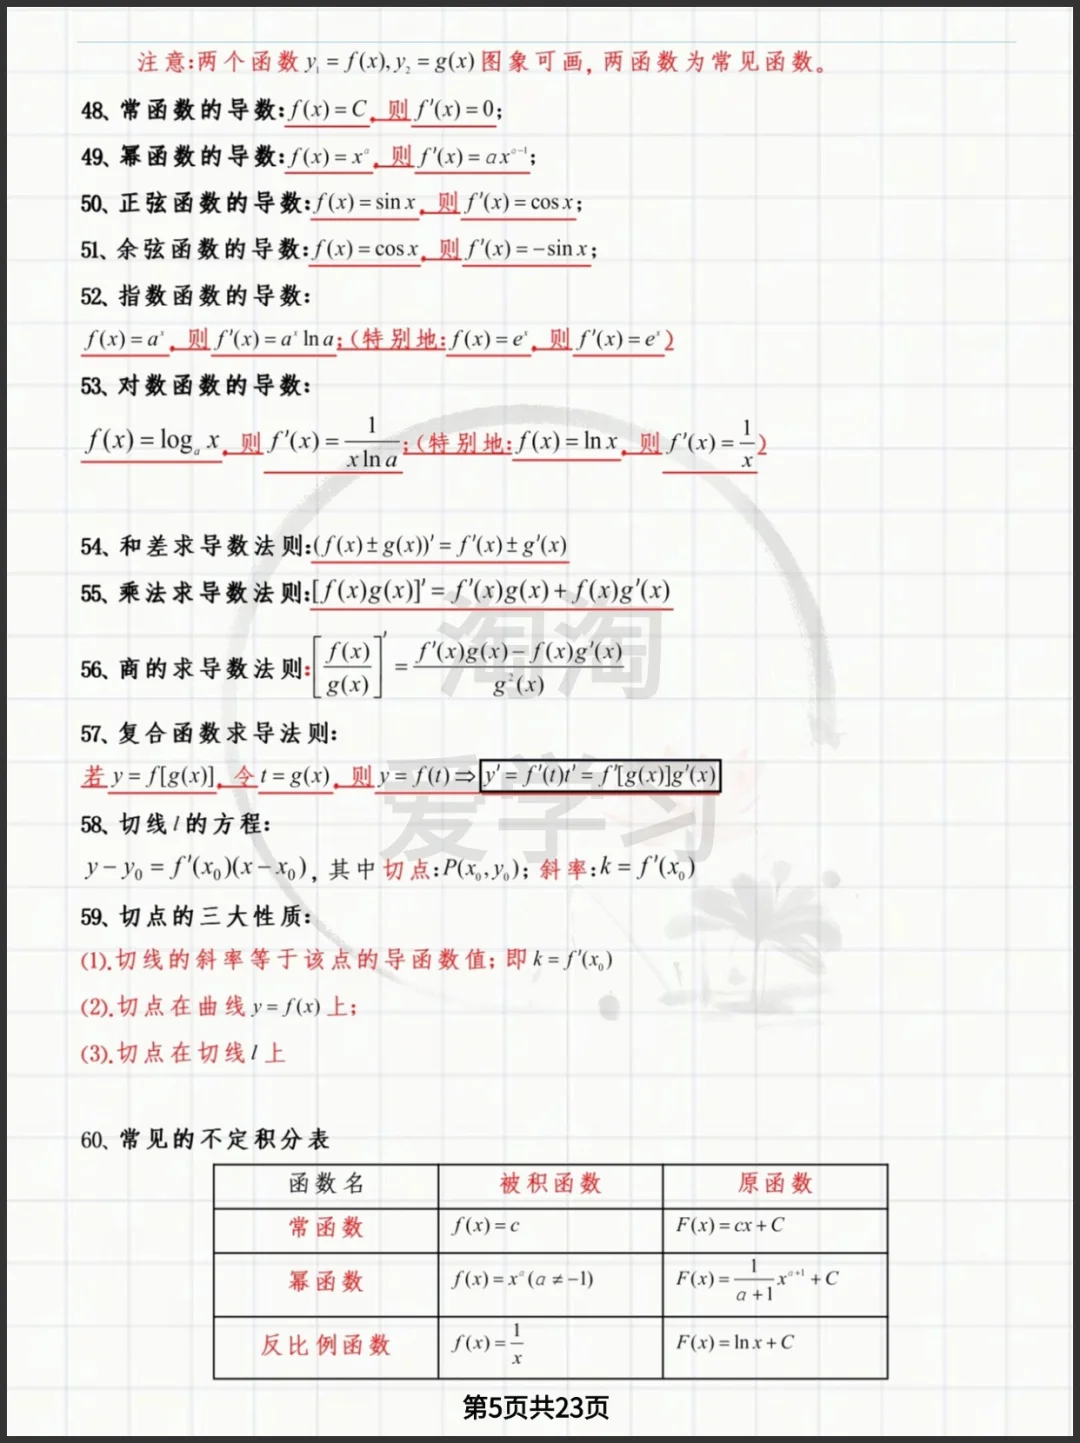 注意:两个函数 y₁ = f(x), y₂ = g(x) 图象可画, 两函数为常见函数。
48、常函数的导数: f(x) = C, 则 f′(x) = 0;
49、幂函数的导数: f(x) = xᵃ, 则 f′(x) = axᵃ⁻¹;
50、正弦函数的导数: f(x) = sin x, 则 f′(x) = cos x;
51、余弦函数的导数: f(x) = cos x, 则 f′(x) = −sin x;
52、指数函数的导数:
f(x) = aˣ, 则 f′(x) = aˣ ln a; (特别地: f(x) = eˣ, 则 f′(x) = eˣ)
53、对数函数的导数:
f(x) = logₐ x, 则 f′(x) = 1/(x ln a); (特别地: f(x) = ln x, 则 f′(x) = 1/x)
54、和差求导数法则: (f(x) ± g(x))′ = f′(x) ± g′(x)
55、乘法求导数法则: [f(x)g(x)]′ = f′(x)g(x) + f(x)g′(x)
56、商的求导数法则: [f(x)/g(x)]′ = (f′(x)g(x) − f(x)g′(x))/g²(x)
淘淘
57、复合函数求导法则:
若 y = f[g(x)], 令 t = g(x), 则 y = f(t) ⇒ y′ = f′(t)t′ = f′[g(x)]g′(x)
爱学习
58、切线 l 的方程:
y − y₀ = f′(x₀)(x − x₀), 其中切点: P(x₀, y₀); 斜率: k = f′(x₀)
59、切点的三大性质:
(1).切线的斜率等于该点的导函数值; 即 k = f′(x₀)
(2).切点在曲线 y = f(x) 上;
(3).切点在切线 l 上
60、常见的不定积分表
函数名 被积函数 原函数
常函数 f(x) = c F(x) = cx + C
幂函数 f(x) = xᵃ (a ≠ −1) F(x) = 1/(a+1) xᵃ⁺¹ + C
反比例函数 f(x) = 1/x F(x) = ln x + C
第5页共23页